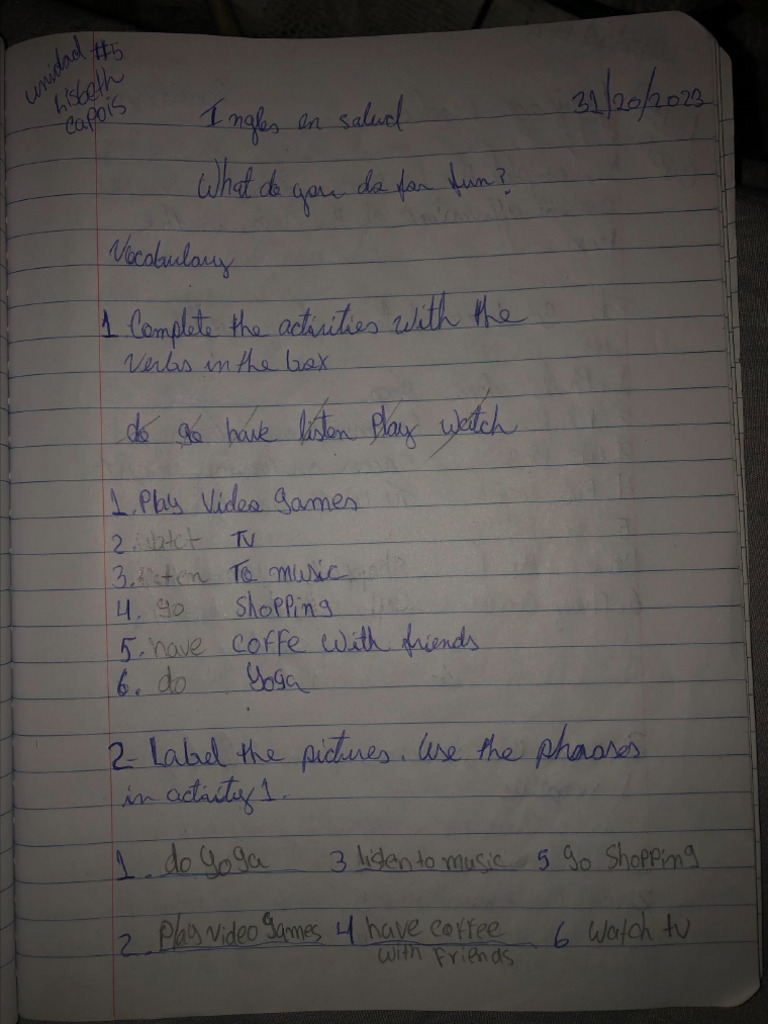 unidad #5
Lisbeth
capois
Ingles en salud
31/20/2023
What do you do for fun?
Vocabulary
1 Complete the activities with the
verbs in the box
do go have listen Play Watch
1. Play Video games
2. watct TV
3. listen To music
4. go Shopping
5. have coffe With friends
6. do Yoga
2- Label the pictures. Use the phrases
in activity 1.
1. do Yoga 3 listen to music 5 go Shopping
2 Play video games 4 have coffee 6 Watch tv
with Friends